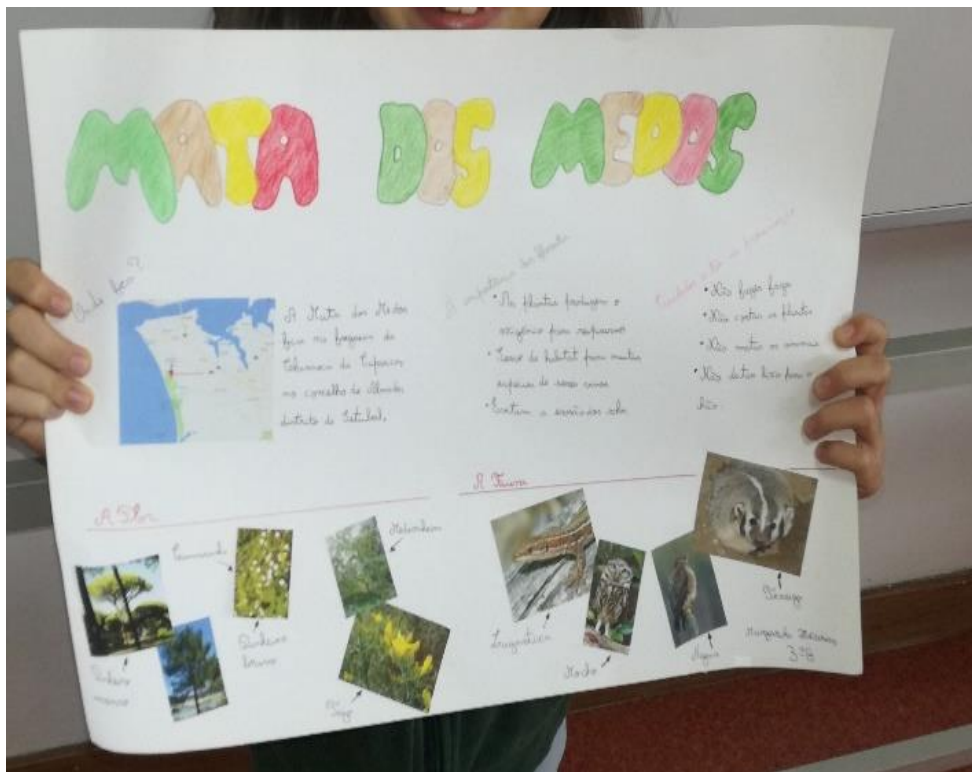 MATA DOS MEDOS
Onde fica?
A Mata dos Medos
fica na freguesia da
no concelho de Almada
distrito de Setúbal.
A importância da floresta
• As plantas produzem o
oxigénio para respirarmos
• Serve de habitat para muitas
espécies de seres vivos
• Contem a erosão dos solo
• Não fazer fogo
• Não cortar as plantas
• Não matar os animais
• Não deitar lixo para o
chão.
A Flora
Camarinha
Pinheiro
manso
Pinheiro
bravo
A Fauna
Lagartixa
Mocho
Águia
Texugo
Margarida
3ºB